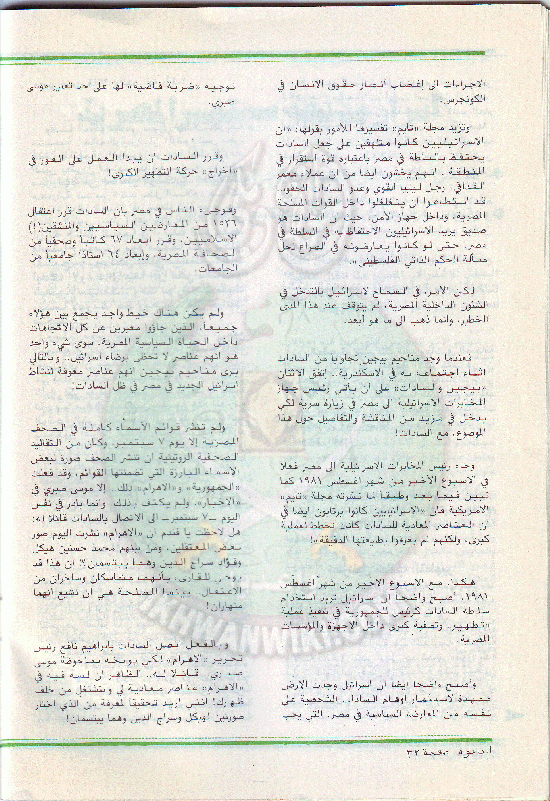 الاجراءات الى إغضاب انصار حقوق الانسان في
الكونجرس.
وتزيد مجلة «تايم» تفسيرها للأمور بقولها: «ان
الاسرائيليين كانوا متلهفين على جعل السادات
يحتفظ بالسلطة في مصر باعتباره قوة استقرار في
المنطقة. انهم يخشون ايضا من ان عملاء معمر
القذافي رجل ليبيا القوي وعدو السادات اللدود،
قد استطاعوا ان يتغلغلوا داخل القوات المسلحة
المصرية، وداخل جهاز الأمن، حيث ان السادات هو
صديق يريد الاسرائيليون الاحتفاظ به في السلطة في
مصر، حتى لو كانوا يعارضونه في الصراع لحل
مسألة الحكم الذاتي الفلسطيني».
لكن الأمر، في السماح لاسرائيل بالتدخل في
الشئون الداخلية المصرية، لم يتوقف عند هذا المدى
الخطير، وانما ذهب الى ما هو أبعد.
فعندما وجد مناحيم بيجين تجاوبا من السادات
اثناء اجتماعه به في الاسكندرية.. اتفق الاثنان
«بيجين والسادات» على ان يأتي رئيس جهاز
المخابرات الاسرائيلية الى مصر في زيارة سرية لكي
يدخل في مزيد من المناقشة والتفاصيل حول هذا
الموضوع، مع السادات!
وجاء رئيس المخابرات الاسرائيلية الى مصر فعلا
في الاسبوع الأخير من شهر اغسطس ١٩٨١ كما
تبين فيما بعد وطبقا لما نشرته مجلة «تايم»
الامريكية فان «الاسرائيليين كانوا يرتابون ايضا في
ان العناصر المعادية للسادات كانت تخطط لعملية
كبرى، ولكنهم لم يعرفوا طبيعتها الدقيقة»!
هكذا.. مع الاسبوع الاخير من شهر اغسطس
١٩٨١، أصبح واضحا ان اسرائيل تريد استخدام
سلطة السادات كرئيس للجمهورية في تنفيذ عملية
«تطهير» وتصفية كبرى داخل الاجهزة والمؤسسات
المصرية.
وأصبح واضحا ايضا ان اسرائيل وجدت الارض
ممهدة لاستثمار اوهام السادات الشخصية على
نفسه من المعارضة السياسية في مصر، التي يجب
توجيه «ضربة قاضية» لها على حد تعبير موسى
صبري.
وقرر السادات ان يبدأ العمل على الفور في
«اخراج» حركة التطهير الكبرى!
وفوجىء الناس في مصر بأن السادات قرر اعتقال
١٥٣٦ من المعارضين السياسيين والمنشقين(!)
الاسلاميين، وقرر ابعاد ٦٧ كاتباً وصحفياً من
الصحافة المصرية، وابعاد ٦٤ استاذاً جامعياً من
الجامعات.
ولم يكن هناك خيط واحد يجمع بين هؤلاء
جميعاً، الذين جاؤوا معبرين عن كل الاتجاهات
داخل الحياة السياسية المصرية، سوى شيء واحد
هو انهم عناصر لا تحظى برضاء اسرائيل.. وبالتالي
يرى مناحيم بيجين انهم عناصر معوقة لنشاط
اسرائيل الجديد في مصر في ظل السادات.
ولم تنشر قوائم الأسماء كاملة في الصحف
المصرية إلا يوم ٧ سبتمبر. وكان من التقاليد
الصحفية الروتينية ان تنشر الصحف صورة لبعض
الأسماء البارزة التي تضمنتها القوائم، وقد فعلت
«الجمهورية» و«الاهرام» ذلك.. إلا موسى صبري في
«الأخبار»، ولم يكتف بذلك.. وانما بادر في نفس
اليوم ـ ٧ سبتمبر ـ الى الاتصال بالسادات قائلا له:
هل لاحظت يا فندم ان «الاهرام» نشرت اليوم صور
بعض المعتقلين، ومن بينهم محمد حسنين هيكل
وفؤاد سراج الدين وهما يبتسمان؟ ان هذا قد
يوحي للقارىء بأنهما متماسكان وساخران من
الاعتقال.. بينما المصلحة هي ان نشيع انهما
منهاران!
وبالفعل يتصل السادات بإبراهيم نافع رئيس
تحرير «الاهرام» لكي يوبخه بملحوظة موسى
صبري قائلا له: الظاهر ان لسه فيه في
«الاهرام» عناصر معادية لي وبتشتغل من خلف
ظهرك! انني اريد تحقيقا لمعرفة من الذي اختار
صورتين لهيكل وسراج الدين وهما يبتسمان!
الدعوة صفحة ٣٢